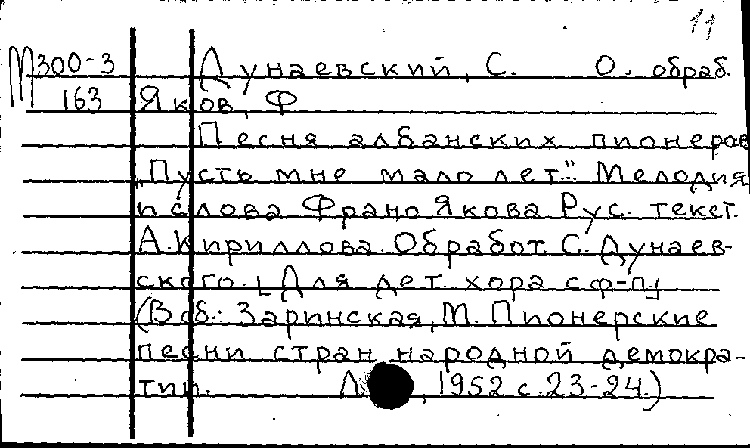 11
М300-3 Дунаевский, С. О. обраб.
163 Яков, Ф
Песня албанских пионеров
„Пусть мне мало лет." Мелодия
и слова Франо Якова Рус. текст.
А. Кириллова. Обработ. С. Дунаев-
ского. [Для дет хора с ф-п]
(В сб.: Заринская, М. Пионерские
песни стран народной демокра-
тии. Л , 1952 с. 23-24.)